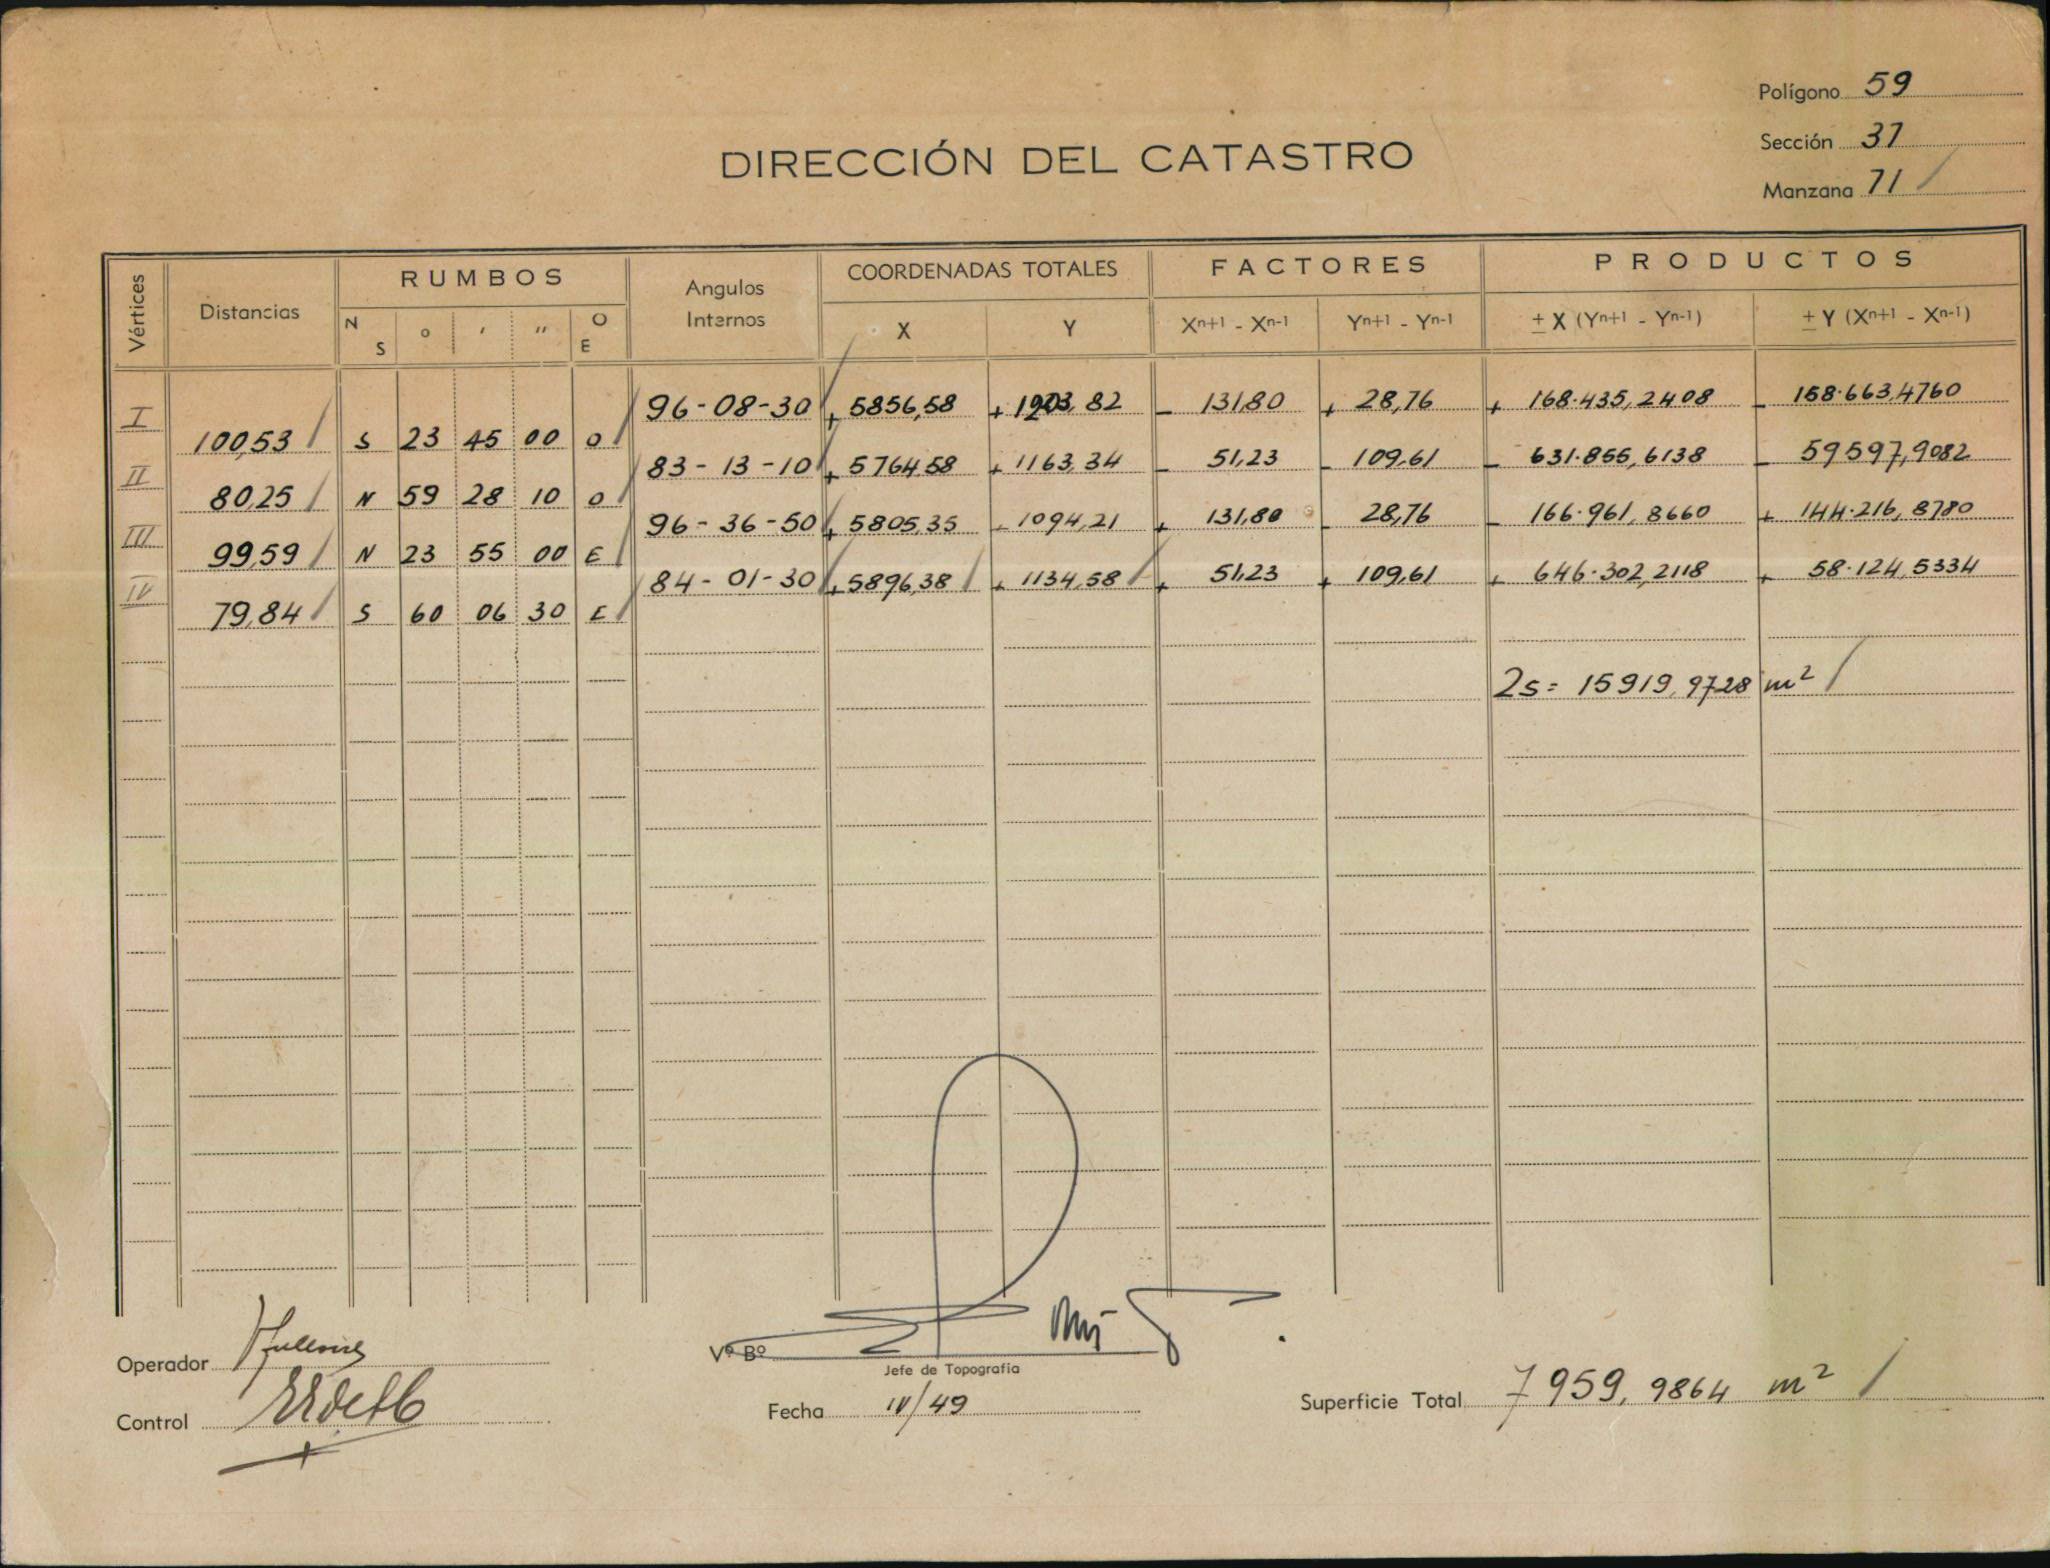 Polígono 59
Sección 37
Manzana 71
DIRECCIÓN DEL CATASTRO
Vértices Distancias RUMBOS Angulos Internos COORDENADAS TOTALES FACTORES PRODUCTOS
N S o ′ ″ O E X Y Xn+1 - Xn-1 Yn+1 - Yn-1 ± X (Yn+1 - Yn-1) ± Y (Xn+1 - Xn-1)
I 96-08-30 + 5856,58 + 1203,82 - 131,80 + 28,76 + 168.435,2408 - 158.663,4760
100,53 S 23 45 00 O
II 83-13-10 + 5764,58 + 1163,34 - 51,23 - 109,61 - 631.855,6138 - 59597,9082
80,25 N 59 28 10 O
III 96-36-50 + 5805,35 + 1094,21 + 131,80 - 28,76 - 166.961,8660 + 144.216,8780
99,59 N 23 55 00 E
IV 84-01-30 + 5896,38 + 1134,58 + 51,23 + 109,61 + 646.302,2118 + 58.124,5334
79,84 S 60 06 30 E
2s = 15919,9728 m²
Operador
Vº Bº
Jefe de Topografía
Control
Fecha IV/49
Superficie Total 7959,9864 m²